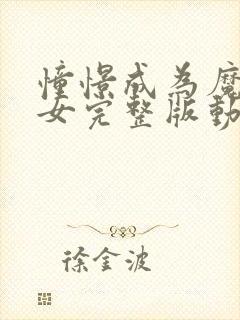 憧憬成为魔
女完整版動
徐金波